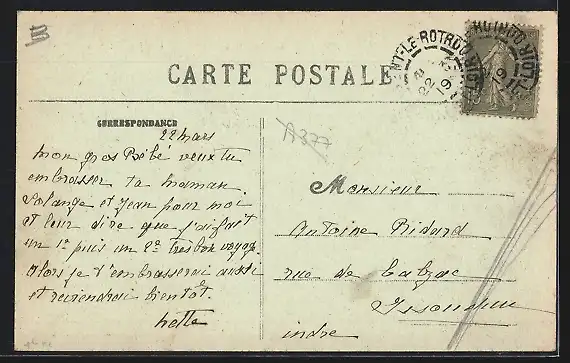 CARTE POSTALE
NT-LE-ROTROU
22
19
CORRESPONDANCE
A377
22 mars
mon gros Bébé veux tu
embrasser ta maman
Solange et Jean pour moi
et leur dire que j'ai fait
un 1e puis un 2e très bon voyage
Alors je t'embrasserai aussi
et reviendrai bientôt.
Monsieur
Antoine Ridard
rue de Balzac
Issoudun
indre